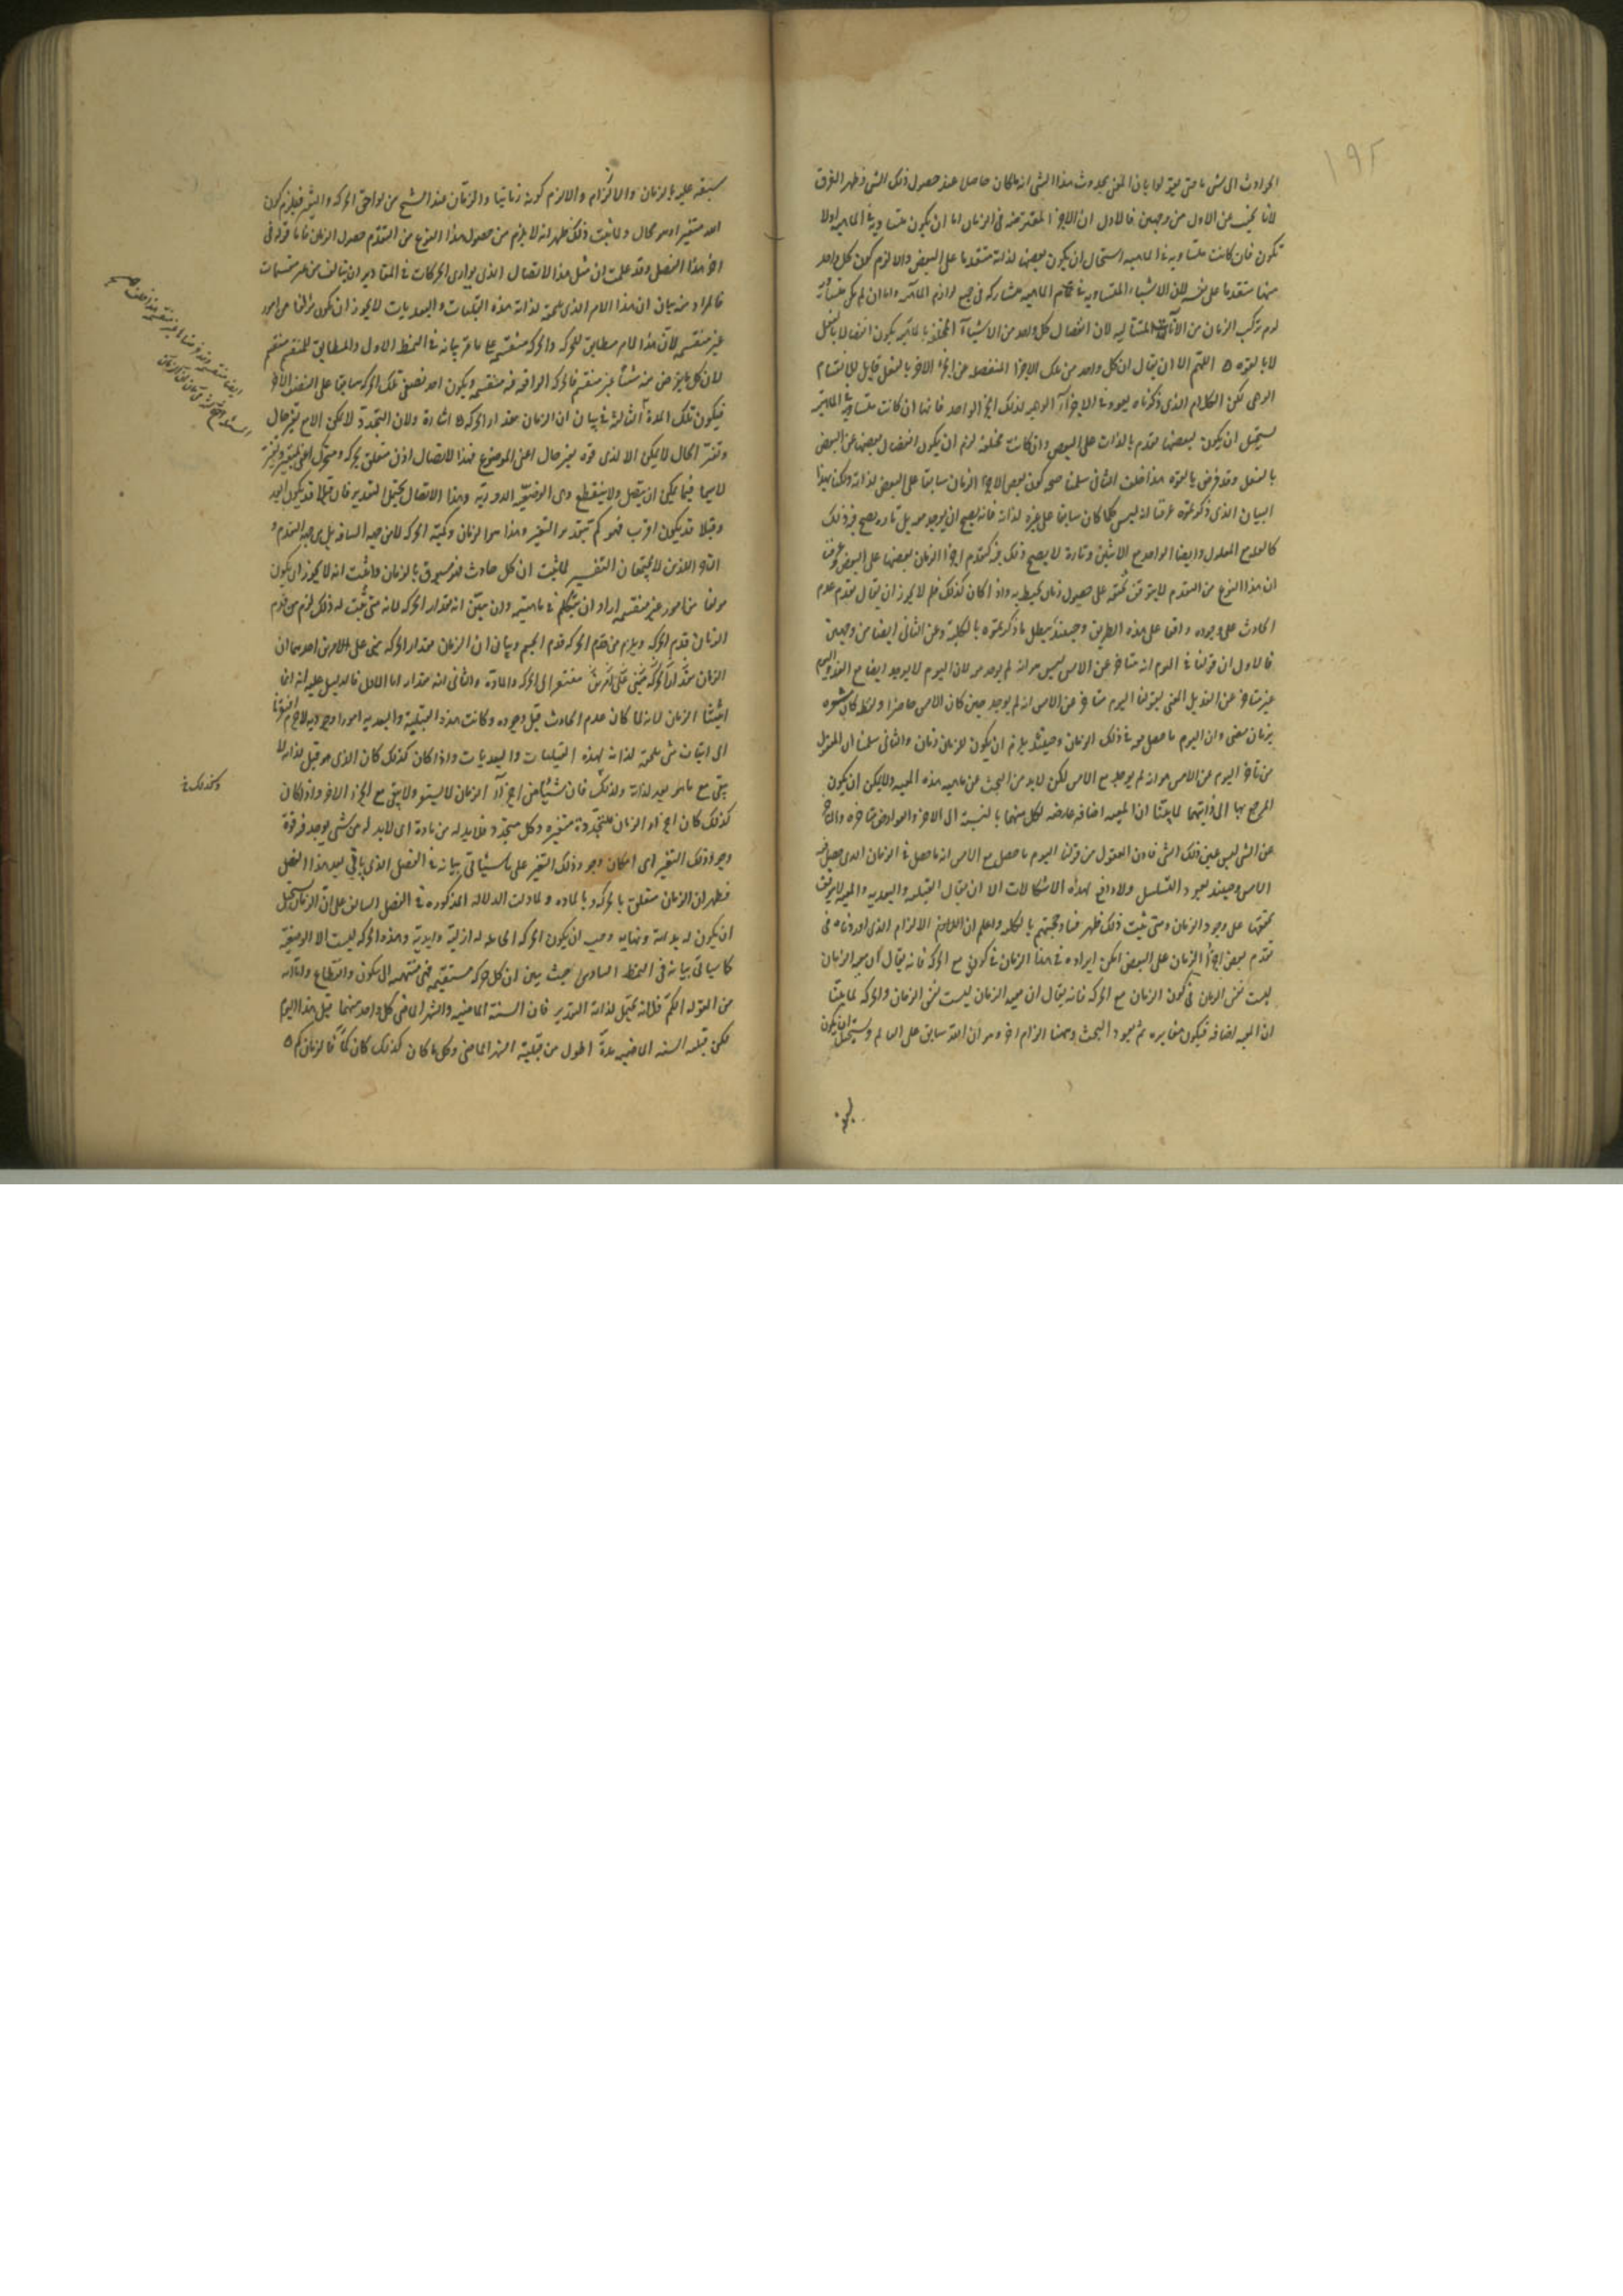 ١٩٢
الحوادث الى شى ما متى يتوالوا بان المعنى بحدوث هذا الشى انه ما كان حاصلا عند حصول ذلك الشى وظهر الفرق
لانا نجيب عن الاول من وجهين فالاول ان الاجزا المفترضة فى الزمان اما ان يكون متساوية فى الماهية او لا
تكون فان كانت متساوية فى الماهية استحال ان يكون بعضها لذاته متقدما على البعض والا لزم كون كل واحد
منها متقدما على نفسه لان الاشياء المتساوية فى تمام الماهية مشاركه فى جميع لوازم الماهية واما ان لم يكن متساوية
لزم تركب الزمان من الآنات المتتالية لان انفصال كل واحد من الاشيآء المختلفة بالماهية يكون انفصالا بالفعل
لا بالقوه اللهم الا ان يقال ان كل واحد من تلك الاجزا المنفصله عن الجزء الاخر بالفعل قابل للانقسام
الوهمى لكن الكلام الذى ذكرناه يعود فى الاجزآء الوهميه لذلك الجزء الواحد فانها ان كانت متساوية فى الماهية
يستحيل ان يكون بعضها متقدم بالذات على البعض وان كانت مختلفة لزم ان يكون انفصال بعضها عن البعض
بالفعل وقد فرض بالقوه هذا خلف الثانى سلمنا صحه كون بعض الاجزاء الزمان سابقا على البعض لذاته ولكن بهذا
البيان الذى ذكرتموه عرفنا انه ليس كلما كان سابقا على غيره لذاته فانه يصح ان يوجد معه بل تارة يصح فيه ذلك
كالعله مع المعلول وايضا الواحد مع الاثنين وتارة لا يصح ذلك فيه كتقدم اجزاء الزمان بعضها على البعض وعرفنا
ان هذا النوع من التقدم لا يتوقف تحققه على حصول زمان يحيط به واذا كان كذلك فلم لا يجوز ان يقال تقدم عدم
الحادث على وجوده واقعا على هذه الطريق وحينئذ يبطل ما ذكرتموه بالكلية وعن الثانى ايضا من وجهين
فالاول ان قولنا فى اليوم انه متاخر عن الامس ليس هو انه لم يوجد معه لان اليوم لا يوجد ايضا مع الغد واليوم
غير متاخر عن الغد بل المعنى بقولنا اليوم متاخر عن الامس انه لم يوجد حين كان الامس حاضرا ولفظ كان مشعره
بزمان مضى وان اليوم ما حصل معه فى ذلك الزمان وحينئذ يلزم ان يكون للزمان زمان والثانى سلمنا ان المعقول
من تاخر اليوم عن الامس هو انه لم يوجد مع الامس لكن لا بد من البحث عن ماهيه هذه المعية ولا يمكن ان يكون
المرجع بها الى ذاتيهما لما بينا ان المعيه اضافه عارضه لكل منهما بالنسبة الى الاخر والعوارض متاخره والمتاخر
عن الشى ليس عين ذلك الشى فاذن المعقول من قولنا اليوم ما حصل مع الامس انه ما حصل فى الزمان الذى حصل فيه
الامس وحينئذ يعود التسلسل ولا دافع لهذه الاشكالات الا ان يقال القبليه والبعديه والمعيه لا يتوقف
تحققها على وجود الزمان ومتى ثبت ذلك ظهر فساد حجتهم بالكليه واعلم ان اللازم الالزام الذى اوردناه فى
تقدم بعض اجزاء الزمان على البعض امكن ايراده فى هذا الزمان فى كونه مع الحركه فانه يقال ان معيه الزمان
ليست نفس الزمان فى كون الزمان مع الحركه فانه يقال ان معيه الزمان ليست نفس الزمان والحركه لما بينا
ان المعيه اضافه فيكون مغايره ثم يعود البحث وههنا الزام اخر وهو ان الله سابق على العالم ويستحيل ان يكون
سبقه عليه بالزمان والا لزم كونه زمانيا والزمان عند الشيخ من لواحق الحركه والتغير فيلزم كون
الله متغيرا وهو محال ولما ثبت ذلك ظهر انه لا يلزم من حصول هذا النوع من التقدم حصول الزمان فاما قوله فى
اخر هذا الفصل وقد علمت ان مثل هذا الاتصال الذى يوازى الحركات فى المقادير لن يتالف من غير منقسمات
فالمراد منه بيان ان هذا الامر الذى يلحقه لذاته هذه القبليات والبعديات لا يجوز ان يكون مركبا من امور
غير منقسمه لان هذا الامر مطابق للحركه والحركه منقسمه على ما مر بيانه فى النمط الاول والمطابق للمنقسم منقسم
لان كل جزء فرض منه شيئا غير منقسم فالحركه الواقعه فيه منقسمه ويكون احد نصفى تلك الحركه سابقا على النصف الاخر
فيكون تلك المدة الثالثة فى بيان ان الزمان مقدار الحركه اشارة ولان التجدد لا يمكن الا مع تغير حال
وتغير الحال لا يمكن الا لذى قوه تغير حال اعنى الموضوع فهذا الاتصال اذن متعلق بحركه ومتحرك اعنى بتغير ومتغير
لا سيما فيما يمكن ان يتصل ولا ينقطع وهى الوضعيه الدوريه وهذا الاتصال يحتمل التقدير فان قبلا قد يكون ابعد
وقبلا قد يكون اقرب فهو كم تقدر التغير وهذا هو الزمان وكمية الحركه لا من جهه المسافه بل من جهه التقدم و
التاخر اللذين لا يجتمعان التفسير لما ثبت ان كل حادث فهو مسبوق بالزمان وثبت انه لا يجوز ان يكون
مولفا من امور غير منقسمه اراد ان يتكلم فى ماهيته وان يبين انه مقدار الحركه لانه متى ثبت له ذلك لزم من قدم
الزمان قدم الحركه ويلزم من قدم الحركه قدم الجسم وبيان ان الزمان مقدار الحركه مبنى على امرين احدهما ان
الزمان مفتقر الى الحركه والمادة والثانى انه مقدار اما الاول فالدليل عليه انه انما
اثبتنا الزمان لانه لما كان عدم الحادث قبل وجوده وكانت هذه القبلية والبعديه امورا وجوديه لا جرم افتقرنا
الى اثبات شى يلحقه لذاته بهذه القبليات والبعديات واذا كان كذلك كان الذى هو قبل لذاته لا
يبقى مع ما هو بعد لذاته ولذلك فان شيئا من اجزآء الزمان لا يستقر ولا يبقى مع الجزء الاخر واذا كان
كذلك كان اجزاء الزمان متجددة متغيره وكل متجدد فلا بد له من مادة اى لا بد له من شى يوجد فيه قوة
وجود ذلك التغير اى امكان وجود ذلك التغير على ما سياتى بيانه فى الفصل الذى ياتى بعد هذا الفصل
فظهر ان الزمان متعلق بالحركه وبالماده ولما دلت الدلاله المذكوره فى الفصل السالف على ان الزمان يستحيل
ان يكون له بداية ونهايه وجب ان يكون الحركه الحامله له ازلية وابدية وهذه الحركه ليست الا الوضعية
كما سياتى بيانه فى النمط السادس حيث يبين ان كل حركه مستقيمه فهى منتهيه الى سكون وانقطاع واما انه
من مقوله الكم فلانه يحتمل لذاته التقدير فان السنة الماضيه والشهر الماضى كل واحد منهما قبل هذا اليوم
لكن قبليه السنه الماضيه مدة اطول من قبلية الشهر الماضى وكل ما كان كذلك كان كما فالزمان كم
وكذلك